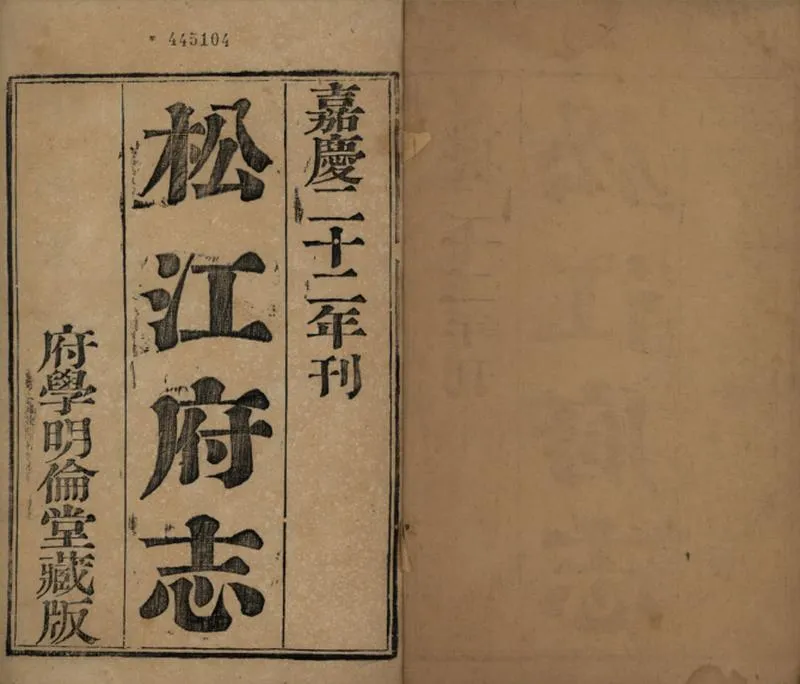 445104
嘉慶二十二年刊
松江府志
府學明倫堂藏版